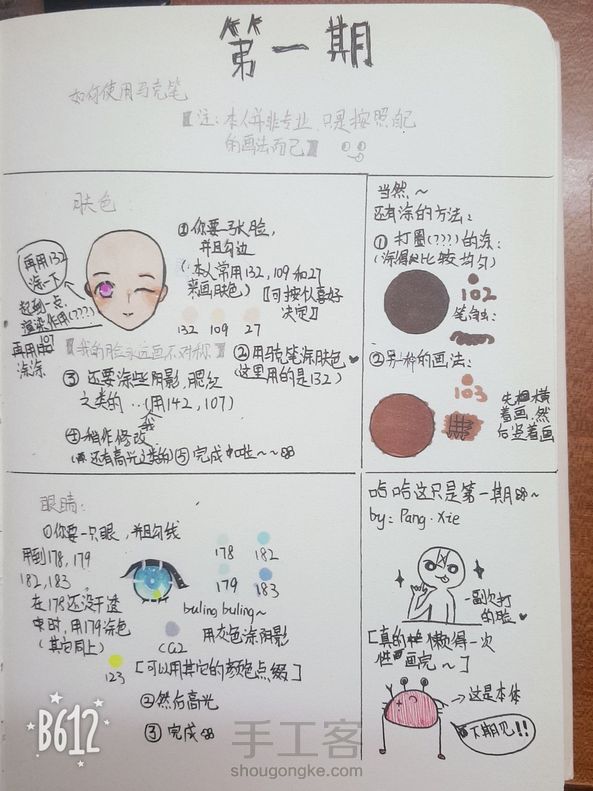 第一期
如何使用马克笔
【注：本人并非专业，只是按照自己
的画法而已】
肤色
①你要一张脸，
并且勾边
(本人常用132，109和27
来画肤色)【可按个人喜好
决定】
132 109 27
再用132
涂一下
起到一点
渲染作用(???)
再用107
涂涂
【我的脸永远画不对称】
②用马克笔涂肤色
(这里用的是132)
③还要涂些阴影，腮红
之类的…(用142，107)
我
④稍作修改
(还有高光之类的)
⑤完成啦~~
当然~
还有涂的方法：
①打圈(???)的涂：
(涂得比较均匀)
102
笔触：
②另一种的画法：
103
先横
着画，然
后竖着画
眼睛：
①你要一只眼，并且勾线
用到178，179
182，183
在178还没干透
时，用179涂色
(其它同上)
178 182
179 183
buling buling~
CG2
用灰色涂阴影
123
[可以用其它的颜色点缀]
②然后高光
③完成
哈哈这只是第一期~
by：Pang·Xie
一副欠打
的脸
[真的懒得一次
性画完~]
→这是本体
下期见!!
B612
手工客
shougongke.com